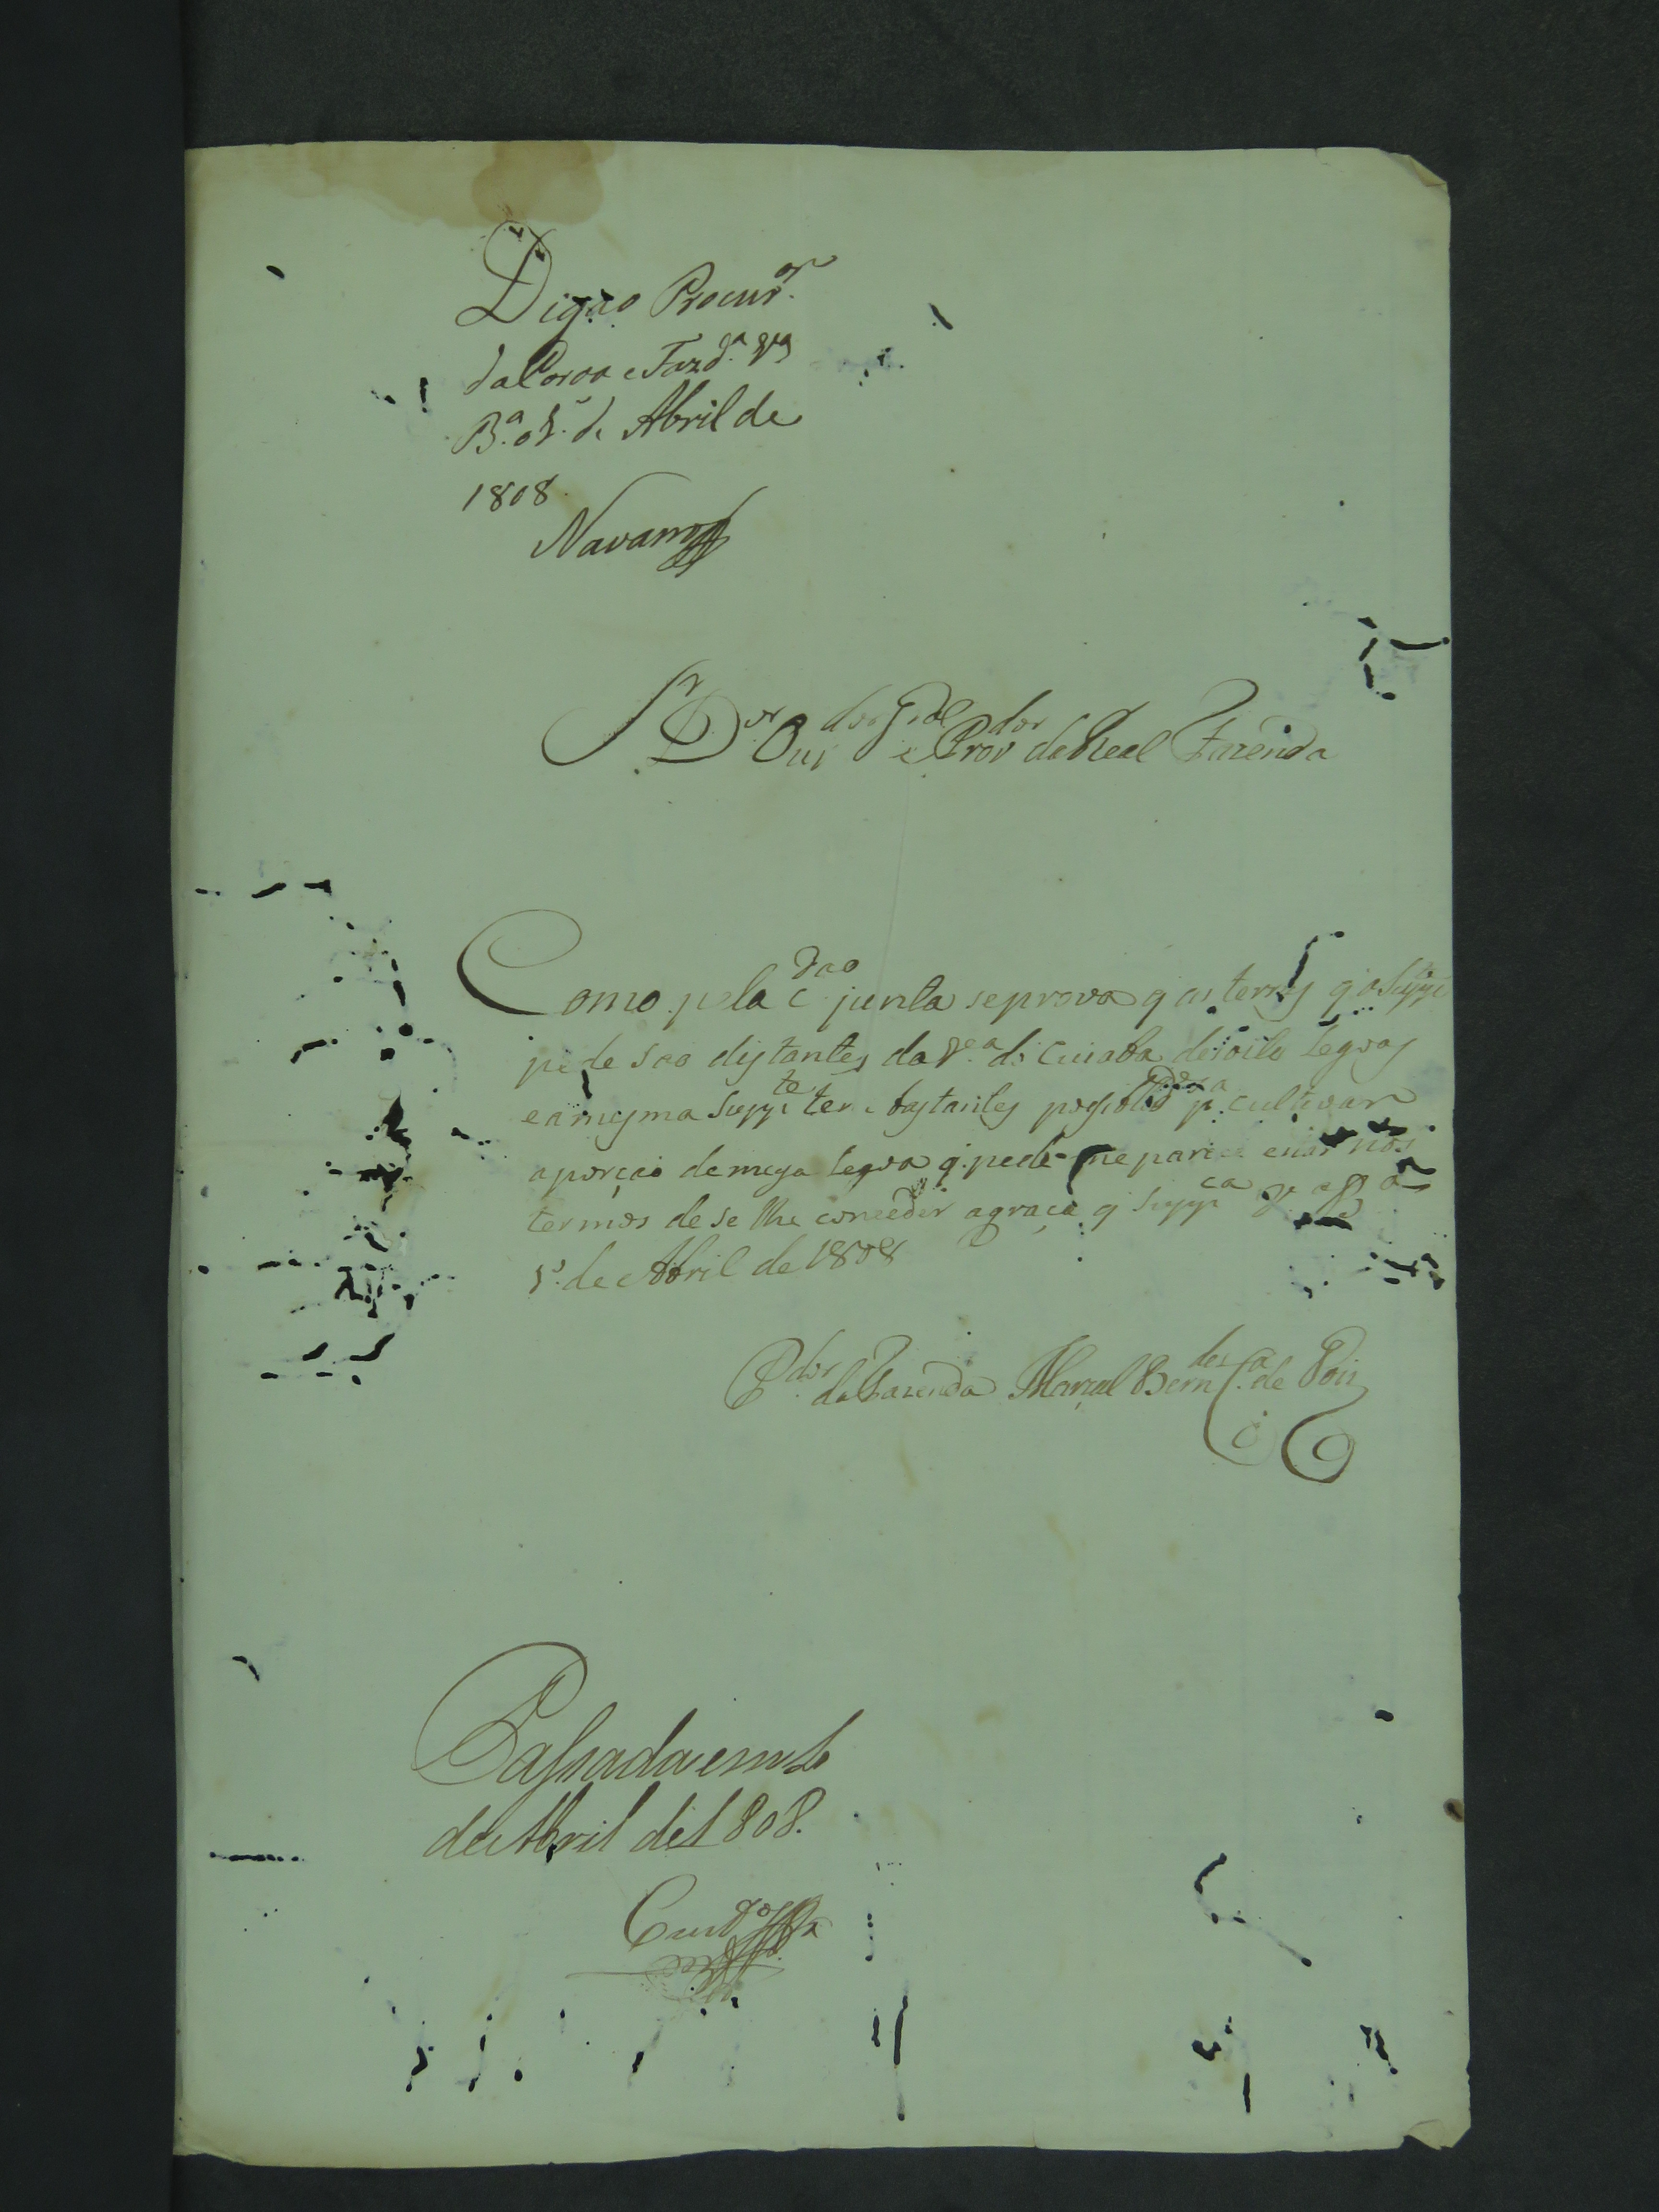 Diga o Procur.or
da Coroa e Fazd.a V.a
B.a o 1.º de Abril de
1808.
Navarro
Sr. D.or Ouv.dor G.ral e Prov.dor da Real Fazenda
Como pela C.dao junta se prova q as terras q a Supp.te
pede sao distantes da V.a do Cuiaba dezoito legoas
e a mesma Supp.te ter bastantes possibilid.des p.a cultivar
a porçaõ de meya legoa q. pede me parece estar nos
termos de se lhe conceder a graça q Supp.ca V.a
1.º de Abril de 1808
P.dor da Fazenda Marçal Bern.des de
Passada em
de Abril de 1808.